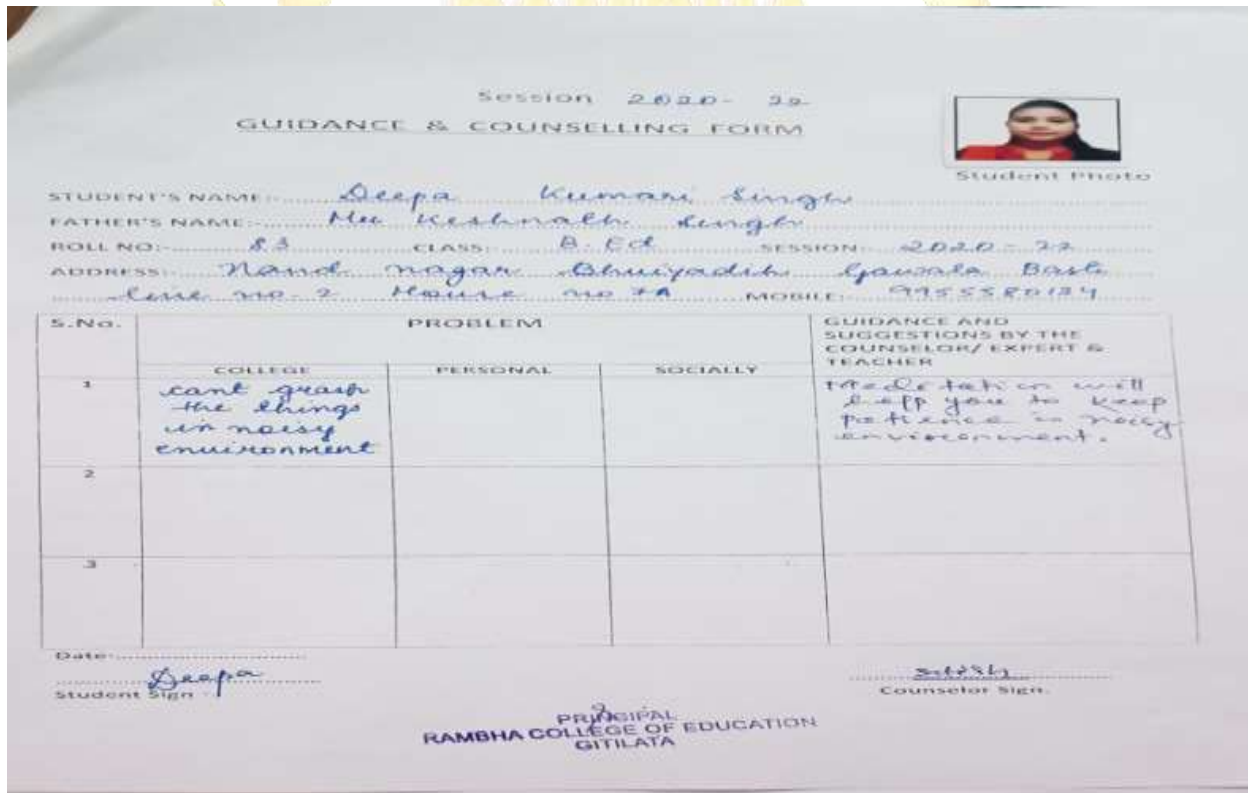 Session 2020-22
GUIDANCE & COUNSELLING FORM
Student Photo
STUDENT'S NAME:- Deepa Kumari Singh
FATHER'S NAME:- Singh
ROLL NO:- 83 CLASS:- B.Ed SESSION:- 2020-22
ADDRESS:- Nand nagar Bhuiyadih Gawala Basti
line no. 2 House no 7A MOBILE:
S.No. PROBLEM GUIDANCE AND
SUGGESTIONS BY THE
COUNSELOR/ EXPERT &
TEACHER
COLLEGE PERSONAL SOCIALLY
1 cant grasp
the things
in noisy
environment
Meditation will
help you to keep
patience in noisy
environment.
2
3
Date:
Deepa
Student Sign
Counselor Sign.
PRINCIPAL
RAMBHA COLLEGE OF EDUCATION
GITILATA